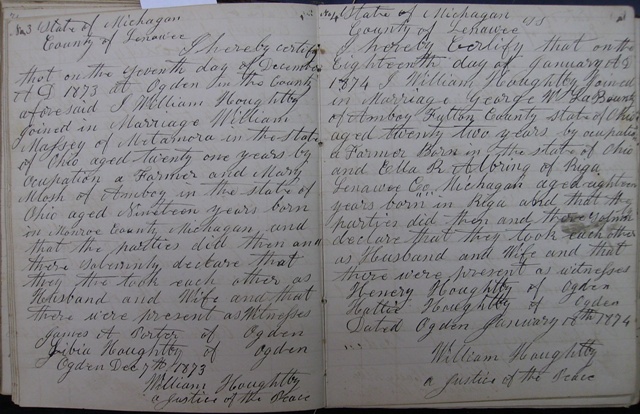 No 3 State of Michagan
County of Lenawee
I hereby certify
that on the seventh day of December
A D 1873 at Ogden in the County
aforesaid I William Houghtby
joined in Marriage William
Massey of Metamora in the state
of Ohio aged twenty one years by
Ocupation a Farmer and Mary
Mosh of Amboy in the state of
Ohio aged Nineteen years born
in Monroe County Michagan and
that the parties did then and
there solemnly declare that
they the took each other as
Husband and Wife and that
there were present as Witnesses
James A Porter of Ogden
Libia Houghtby of Ogden
Ogden Dec 7th 1873
William Houghtby
a Justice of the Peace
No 4 State of Michagan
County of Lenawee SS
I hereby Certify that on the
Eighteenth day of January A D
1874 I William Houghtby Joined
in Marriage George W
of Amboy Fulton County state of Ohio
aged twenty two years by ocupation
a Farmer Born in the state of Ohio
and Ella R Albring of Riga
Lenawee Co, Michagan aged eighteen
years born in Riga and that the
parties did then and there
declare that they took each other
as Husband and Wife and that
there were present as witnesses
Henery Houghtby of Ogden
Hattie Houghtby of Ogden
Dated Ogden January 18th 1874
William Houghtby
a Justice of the Peace